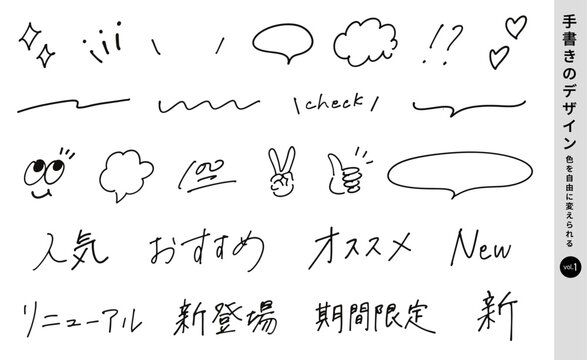 !?
\check/
100
人気 おすすめ オススメ New
リニューアル 新登場 期間限定 新
手書きのデザイン
色を自由に変えられる
vol.1